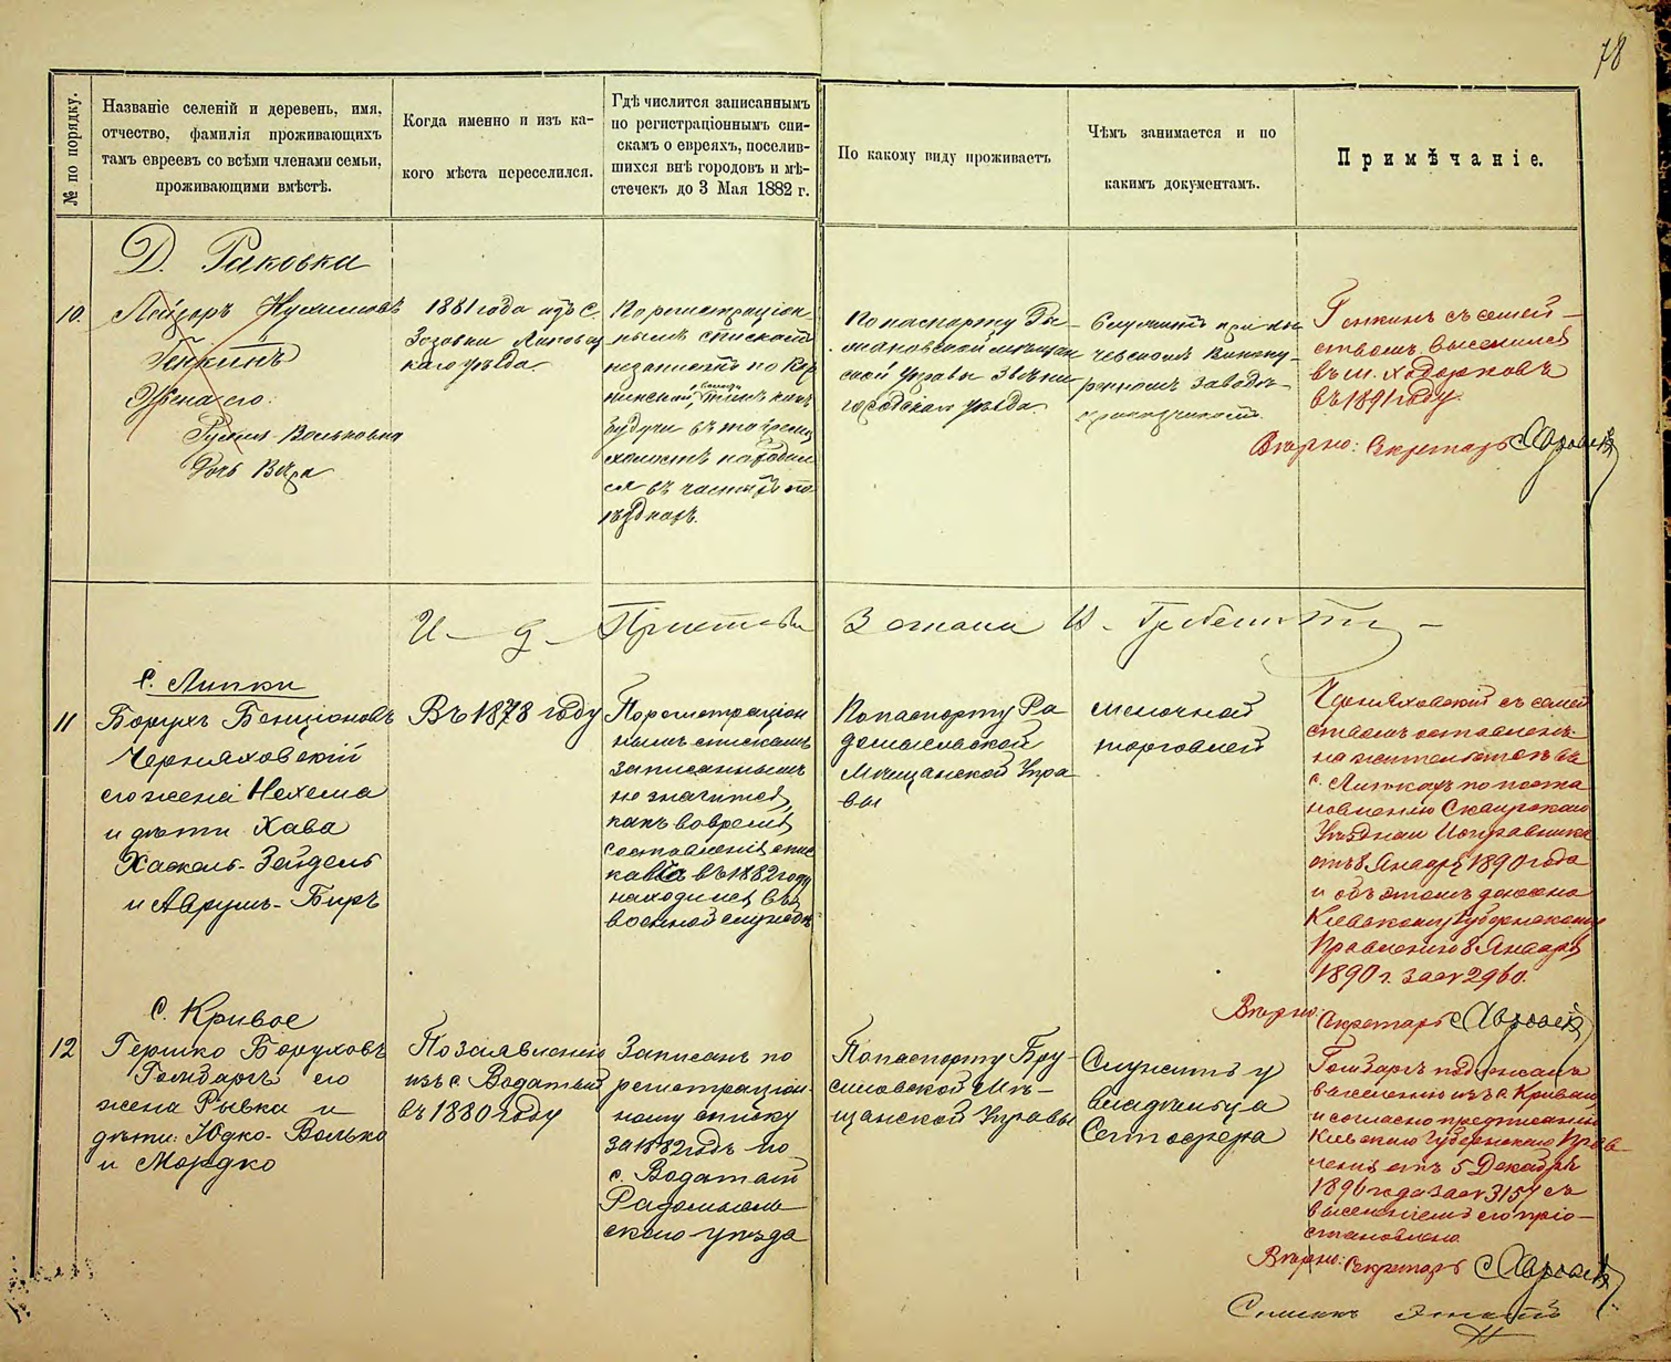 78
№ по порядку.
Названіе селеній и деревень, имя,
отчество, фамилія проживающихъ
тамъ евреевъ со всѣми членами семьи,
проживающими вмѣстѣ.
Когда именно и изъ ка-
кого мѣста переселился.
Гдѣ числится записаннымъ
по регистраціоннымъ спи-
скамъ о евреяхъ, поселив-
шихся внѣ городовъ и мѣ-
стечекъ до 3 Мая 1882 г.
По какому виду проживаетъ
Чѣмъ занимается и по
какимъ документамъ.
Примѣчаніе.
Д. Раковка
10.
Лейзоръ
Генкинъ
Жена его:
Вольковна
Дочь Вера
1881 года изъ с.
Зозовки Липовец
каго уѣзда
По регистраціон
нымъ спискамъ
незаписанъ по
какъ
будучи въ то время
холостъ находил
ся въ частыхъ по
ѣздкахъ.
По паспорту
мѣщан
ской Управы Звѣни
городскаго уѣзда
Служитъ при
Виноку-
ренномъ заводѣ
Генкинъ съ семей-
ствомъ выселился
въ м. Ходорковъ
въ 1891 году.
Вѣрно: Секретарь
И. д. Пристава 3 стана
с. Липки
11
Борухъ Бенціоновъ
Черняховскій
его жена Нехема
и дѣти Хава
Хаскель-Зейдель
и Аврумъ-Биръ
Въ 1878 году
По регистраціон
нымъ спискамъ
записаннымъ
не значится,
какъ вовремя
составленія спис
ковъ въ 1882 году
находился въ
военной службѣ
По паспорту Ра
домысльской
Мѣщанской Упра
вы
мелочной
торговлей
Черняховскій съ семей
ствомъ оставленъ
на жительствѣ въ
с. Липкахъ по поста
новленію Сквирскаго
Уѣзднаго Исправника
отъ 8 Января 1890 года
и объ этомъ донесено
Кіевскому Губернскому
Правленію 8 Января
1890 г. за № 2960.
Вѣрно:
Секретарь
С. Кривое
12
Гершко Боруховъ
Гомбаргъ его
жена Рывка и
дѣти: Юдко-Волько
и Мордко
По заявленію
изъ с. Водатый
въ 1880 году
Записанъ по
регистраціон
ному списку
за 1882 годъ по
с. Водатый
Радомысль
скаго уѣзда
По паспорту Бру-
силовской Мѣ-
щанской Управы
Служитъ у
владѣльца
Гомбаргъ подлежалъ
выселенію изъ с. Криваго
и согласно предписанію
Кіевскаго Губернскаго Прав-
ленія отъ 5 Декабря
1890 года за № 3154 съ
выселеніемъ его пріо-
становлено.
Вѣрно: Секретарь
Списокъ